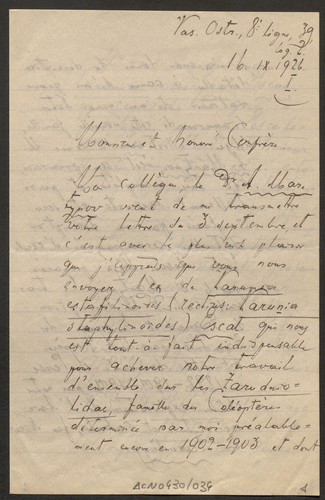 Vas. Ostr., 8e ligne, 39
log. 2.
16.IX.1926.
I.
Monsieur et honoré Confrère
Mon collègue, le Dr A. Mar-
tynov vient de me transmettre
votre lettre du 3 septembre, et
c'est avec le plus vif plaisir
que j'apprends que vous nous
envoyez l'ex. de
estafilinoides (rectius:
staphylinoides) Escal. qui nous
est tout à fait indispensable
pour achever notre travail
d'ensemble sur les
lidae, famille des Coléoptères
déterminée par moi préalable-
ment encore en 1902-1903 et dont
ACN0430/034